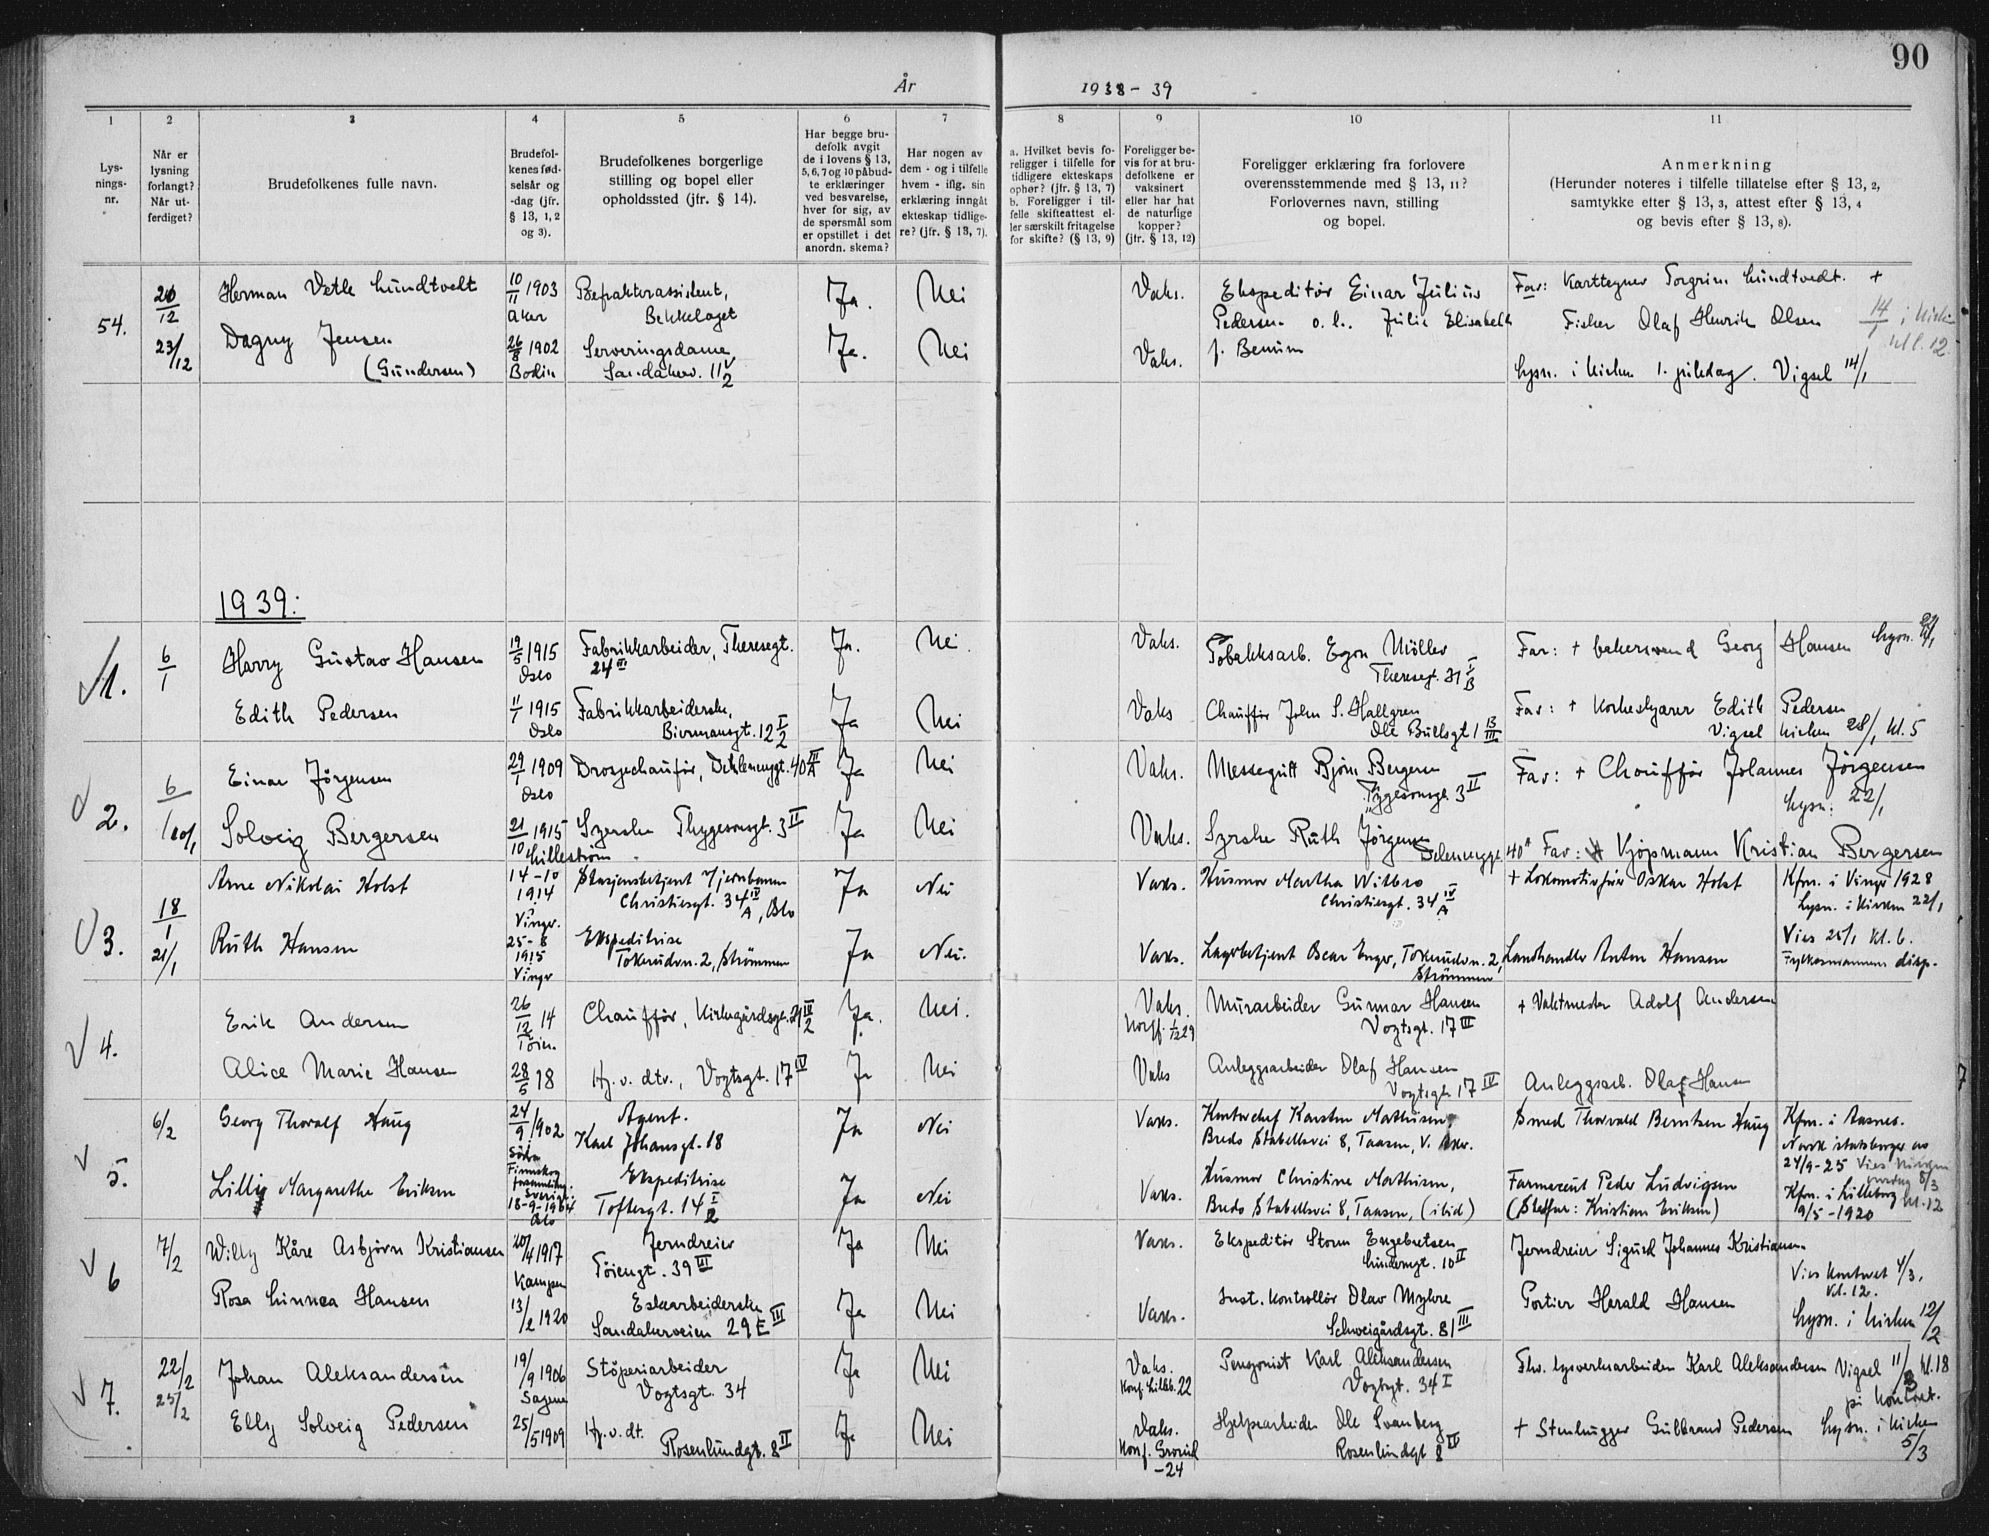 90
År 1938-39
1 2 3 4 5 6 7 8 9 10 11
Lys-
nings-
nr.
Når er
lysning
forlangt?
Når ut-
ferdiget?
Brudefolkenes fulle navn.
Brudefol-
kenes fød-
selsår og
-dag (jfr.
§ 13, 1, 2
og 3).
Brudefolkenes borgerlige
stilling og bopel eller
opholdssted (jfr. § 14).
Har begge bru-
defolk avgit
de i lovens § 13,
5, 6, 7 og 10 påbud-
te erklæringer
ved besvarelse,
hver for sig, av
de spørsmål som
er opstillet i det
anordn. skema?
Har nogen av
dem - og i tilfelle
hvem - iflg. sin
erklæring inngåt
ekteskap tidlige-
re? (jfr. § 13, 7).
a. Hvilket bevis fo-
religger i tilfelle for
tidligere ekteskaps
ophør? (jfr. § 13, 7)
b. Foreligger i til-
felle skifteattest el-
ler særskilt fritagelse
for skifte? (§ 13, 9)
Foreligger be-
vis for at bru-
defolkene er
vaksinert
eller har hat
de naturlige
kopper?
(jfr. § 13, 12)
Foreligger erklæring fra forlovere
overensstemmende med § 13, 11?
Forlovernes navn, stilling
og bopel.
Anmerkning
(Herunder noteres i tilfelle tillatelse efter § 13, 2,
samtykke efter § 13, 3, attest efter § 13, 4
og bevis efter § 13, 8).
54.
20/12
Herman Vetle Lundtvedt
10/11 1903
Aker
Befrakterassistent,
Bekkelaget
Ja.
Nei
Vaks.
Ekspeditör Einar Julius
Pedersen o.l. Julie Elisabeth
f. Benum
Far: Karttegner Torgrim Lundtvedt. +
23/12
Dagny Jensen
(Gundersen)
26/8 1902
Bodin
Serveringsdame,
Sandakerv. 11 V/2
Ja.
Nei
Vaks.
Fisker Olaf Henrik Olsen
14/1 i kirken
kl. 12.
Lysn. i kirken 1. juledag. Vigsel 14/1
1939:
1.
6/1
Harry Gustav Hansen
19/5 1915
Oslo
Fabrikkarbeider, Theresegt.
24 III
Ja.
Nei.
Vaks.
Tobakksarb. Egon Möller
Theresegt. 21 I/B
Far: + Georg Hansen Lysn. 22/1
Edith Pedersen
11/1 1915
Oslo
Fabrikkarbeiderske,
Biermannsgt. 12 I/2
Ja
Nei
Vaks
Chaufför John S. Hallgren
Ole Bullsgt 1
Far: + korkeskjærer Edith Pedersen
Vigsel kirken 28/1 kl. 5
2.
6/1
Einar Jörgensen
29/1 1909
Oslo
Drosjechaufför, 40 III/A
Ja
Nei
Vaks.
Messegutt Bjön Bergersen
Tygesonsgt. 3 II
Far: + Chaufför Johannes Jörgensen
Lysn: 22/1
10/1
Solveig Bergersen
21/10 1915
Lilleström
Syerske Thygesonsgt. 3 II
Ja
Nei
Vaks.
Syerske Ruth Jörgensen
40 A
Far: Kjöpmann Kristian Bergersen
3.
18/1
Arne Nikolai Holst
14-10
1914
Vinger.
Stasjonsbetjent Hjernbanen
Christiesgt. 34 IV/A, Oslo
Ja
Nei
Vaks.
Husmor Martha Wilbro
Christiesgt. 34 IV/A
+ Lokomotivfører Oskar Holst
Kfm. i Vinger 1928
Lysn. i kirken 22/1
21/1
Ruth Hansen
25-8
1915
Vinger
Ekspeditrise
Tokerudvn. 2, Strömmen
Ja
Nei.
Vaks.
Lagerbetjent Oscar Enger, Tokerudvn. 2,
Strömmen
Landhandler Anton Hansen
Vies 25/1 kl. 6.
Fylkesmannens disp.
4.
Erik Andersen
26/12 14
Töien.
Chaufför, Kirkegårdsgt. 21 III/2
Ja.
Nei.
Vaks.
Murarbeider Gunnar Hansen
Vogtsgt. 17 III
+ Vaktmester Adolf Andersen
Alice Marie Hansen
28/5 18
Hj. v. dtv., Vogtsgt. 17 IV
Ja
Nei
Vaks
Anleggsarbeider Olaf Hansen
Vogtsgt 17 IV
Anleggsarb. Olaf Hansen
5.
6/2
Georg Thoralf Haug
24/9 1902
Södra
Finnskog
forsamling.
Sverige
Agent.
Karl Johansgt. 18
Ja
Nei
Vaks.
Kontorchef Karsten Mathisen,
Bredo Stabellsvei 8, Taasen, V. Aker.
Smed Thorvald Berntsen Haug
Kfm. i Aasnes.
Norsk statsborger av
24/9-25 Vies kirken
onsdag 8/3
kl. 12
Lilly Margarethe Eriksen
18-9-1904
Oslo
Ekspeditrise
Toftesgt. 14 I/2
Ja
Nei
Vaks.
Husmor Christine Mathisen,
Bredo Stabellsvei 8, Taasen, (ibid)
Farmaceut Peder Ludvigsen
(Stedfar: Kristian Eriksen)
Kfm. i Lilleborg
9/5-1920
6
7/2
Willy Kåre Asbjörn Kristiansen
20/4 1917
Kampen
Jerndreier
Töiengt. 39 III
Ja
Nei
Vaks.
Ekspeditör Storm Engebretsen
Lundemgt. 10 II
Jerndreier Sigurd Johannes Kristiansen
Vies kontoret 4/3,
kl. 12.
Rosa Linnea Hansen
13/2 1920
Eskearbeiderske
Sandakerveien 29E III
Ja
Nei
Vaks.
Inst. kontrollör Olav Myhre
Schweigårdsgt. 81 III
Portier Herald Hansen
Lysn. i kirken 12/2
7.
22/2
Johan Aleksandersen
19/9 1906
Sagene
Stöperiarbeider
Vogtsgt. 34
Ja
Nei
Vaks.
Konf. Lilleb. 22
Pensjonist Karl Aleksandersen
Vogtsgt. 34 I
Fhv. lysverksarbeider Karl Aleksandersen
Vigsel 11/3 kl. 18
på kontoret.
25/2
Elly Solveig Pedersen
25/5 1909
Hj. v. dt.
Rosenlundgt. 8 II
Ja
Nei
Vaks.
Konf. Grorud
-24
Hjelpearbeider Ole Svanberg
Rosenlundgt 8 IV
+ Stenhugger Gulbrand Pedersen
Lysn. i kirken
5/3